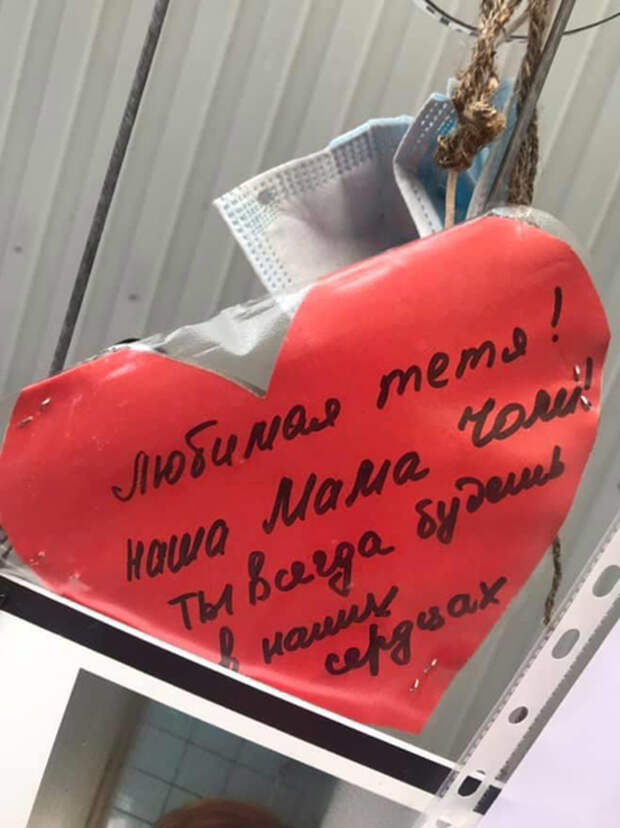 Любимая тетя!
наша Мама Чоли!
ты всегда будешь
в наших
сердцах